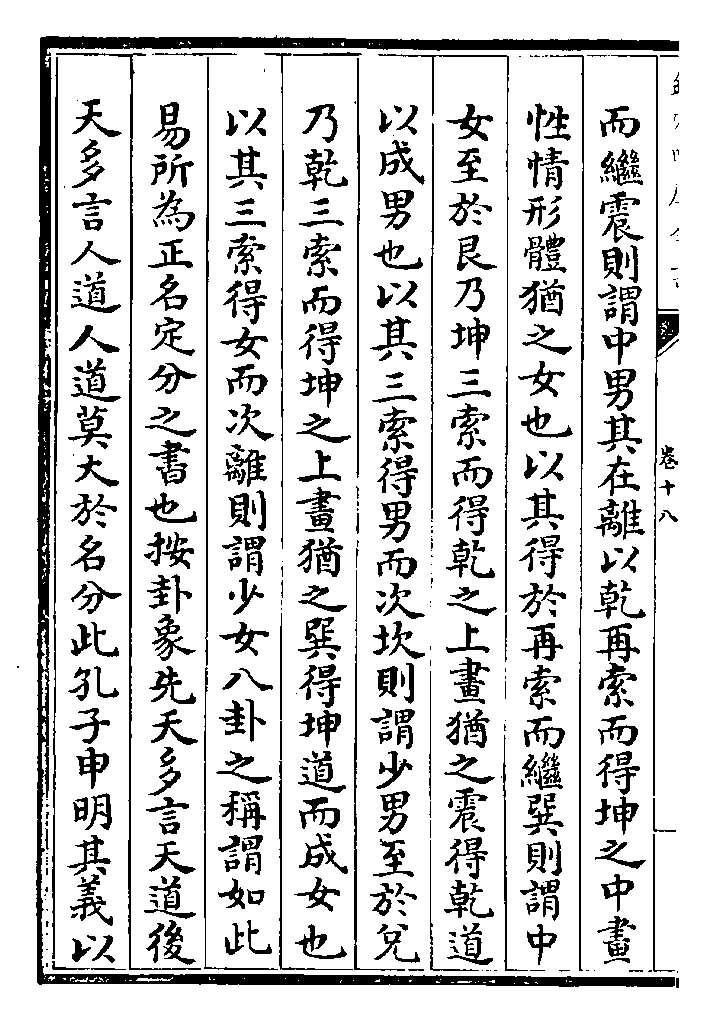 卷十八
而繼震則謂中男其在離以乾再索而得坤之中畫
性情形體猶之女也以其得於再索而繼巽則謂中
女至於艮乃坤三索而得乾之上畫猶之震得乾道
以成男也以其三索得男而次坎則謂少男至於兌
乃乾三索而得坤之上畫猶之巽得坤道而成女也
以其三索得女而次離則謂少女八卦之稱謂如此
易所為正名定分之書也按卦象先天多言天道後
天多言人道人道莫大於名分此孔子申明其義以